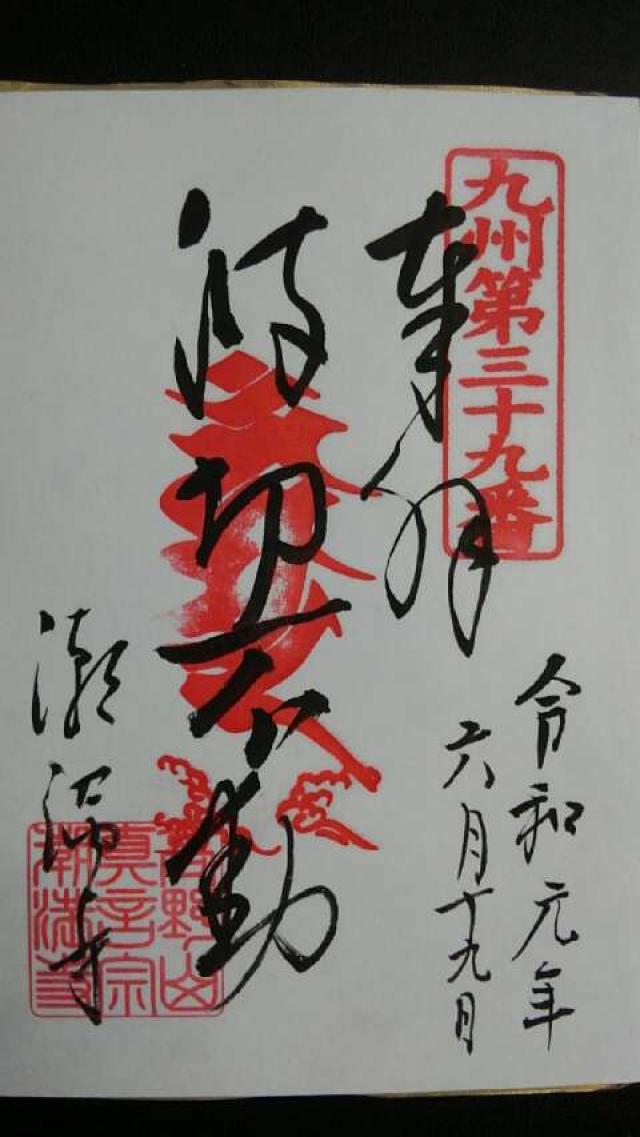 九州第三十九番
奉拝
令和元年
六月十九日
波切不動
潮満寺
高野山
真言宗
潮満寺